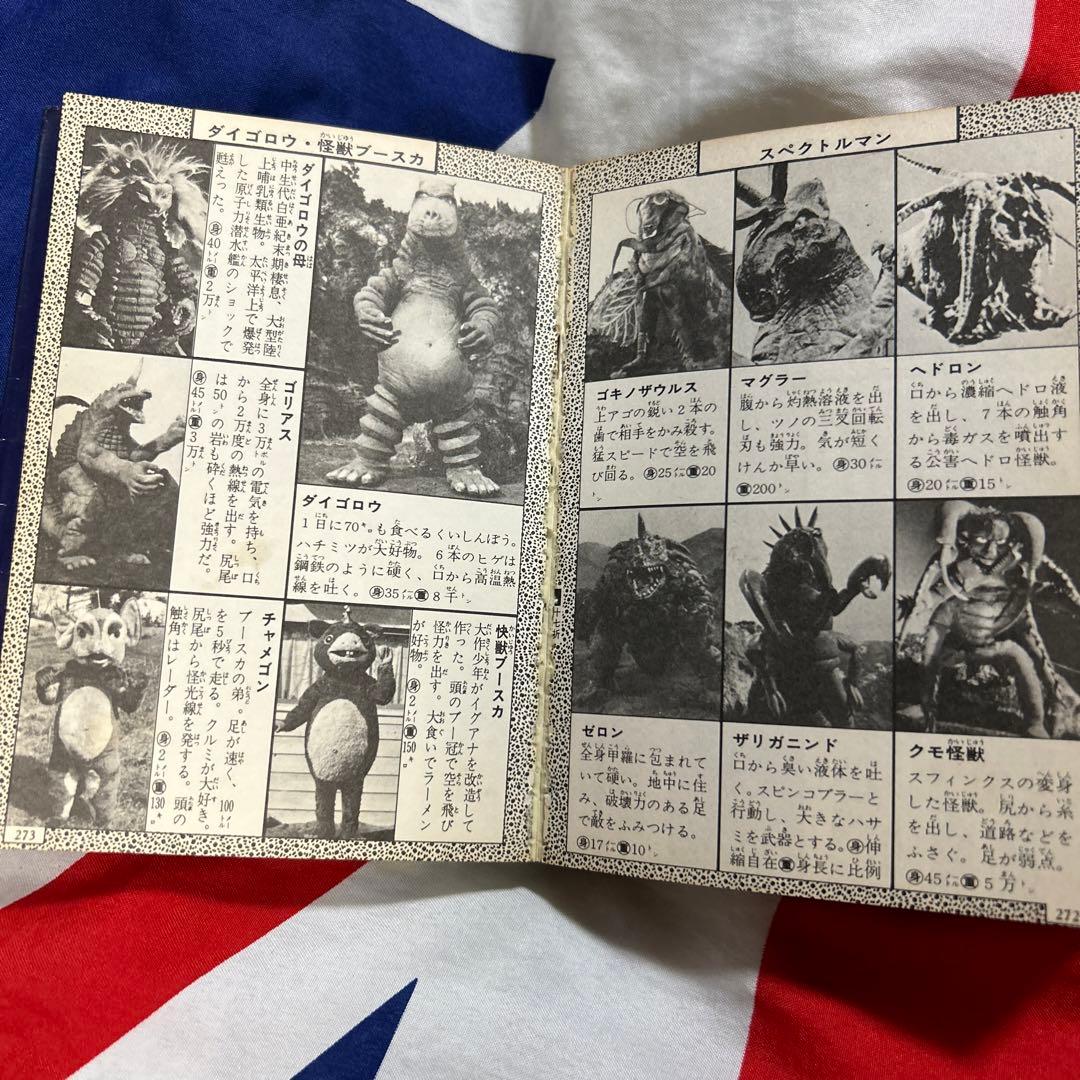 スペクトルマン
ゴキノザウルス
上アゴの鋭い2本の
歯で相手をかみ殺す。
猛スピードで空を飛
び回る。身25メートル重20
トン
マグラー
腹から灼熱溶液を出
し、ツノの三叉回転
刃も強力。気が短く
けんか早い。身30メートル
重200トン
ヘドロン
口から濃縮ヘドロ液
を出し、7本の触角
から毒ガスを噴出す
る公害ヘドロ怪獣。
身20メートル重15トン
ゼロン
全身甲羅に包まれて
いて硬い。地中に住
み、破壊力のある足
で敵をふみつける。
身17メートル重10トン
ザリガニンド
口から臭い液体を吐
く。スピンコブラーと
行動し、大きなハサ
ミを武器とする。身伸
縮自在重身長に比例
クモ怪獣
スフィンクスの変身
した怪獣。尻から糸
を出し、道路などを
ふさぐ。足が弱点。
身45メートル重5万トン
272
ダイゴロウ・怪獣ブースカ
ダイゴロウの母
中生代白亜紀末期棲息、大型陸
上哺乳類生物。太平洋上で爆発
した原子力潜水艦のショックで
甦えった。身40メートル重2万トン
ダイゴロウ
1日に70キロも食べるくいしんぼう。
ハチミツが大好物。6本のヒゲは
鋼鉄のように硬く、口から高温熱
線を吐く。身35メートル重8千トン
ゴリアス
全身に3万ボルトの電気を持ち、口
から2万度の熱線を出す。尻尾
は50トンの岩も砕くほど強力だ。
身45メートル重3万トン
快獣ブースカ
大作少年がイグアナを改造して
作った。頭のブー冠で空を飛び
怪力を出す。大食いでラーメン
が好物。身2メートル重150キロ
チャメゴン
ブースカの弟。足が速く、100メートル
を5秒で走る。クルミが大好き。
尻尾から怪光線を発する。頭の
触角はレーダー。身2メートル重130キロ
273